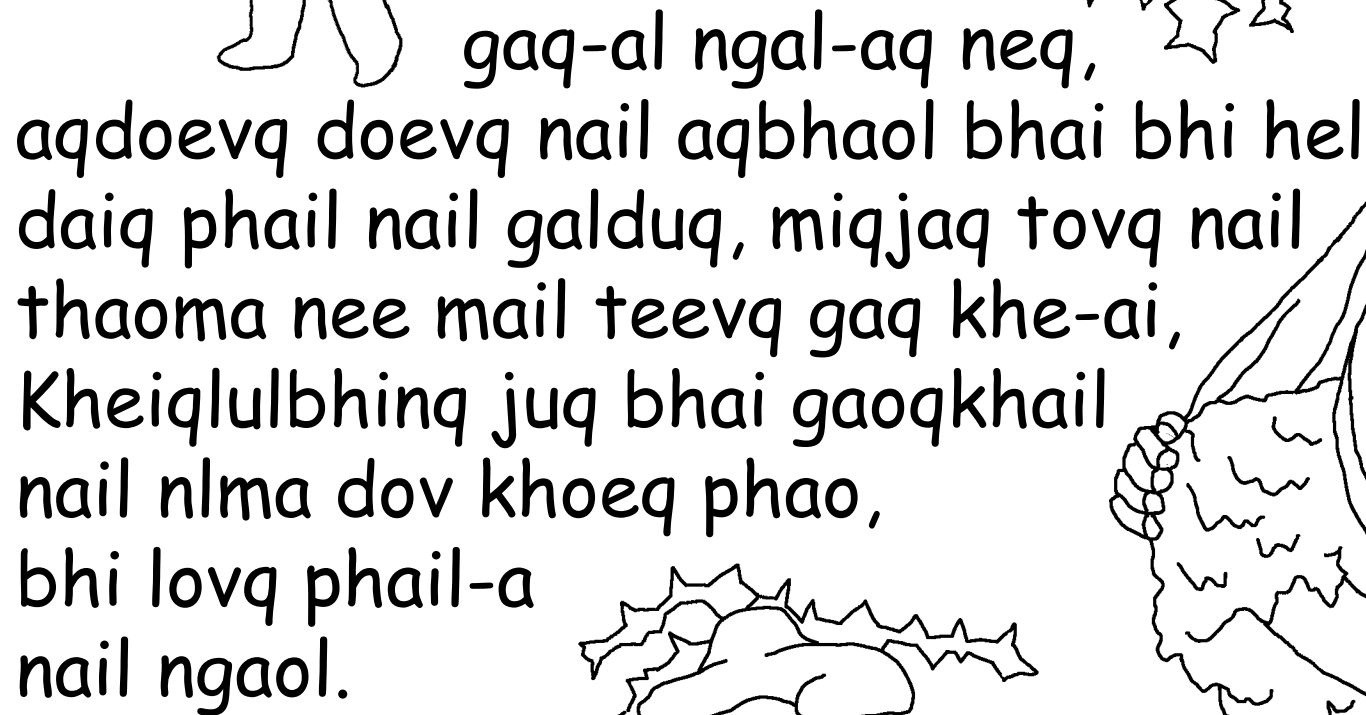 gaq-al ngal-aq neq,
aqdoevq doevq nail aqbhaol bhai bhi hel
daiq phail nail galduq, miqjaq tovq nail
thaoma nee mail teevq gaq khe-ai,
Kheiqlulbhinq juq bhai gaoqkhail
nail nlma dov khoeq phao,
bhi lovq phail-a
nail ngaol.